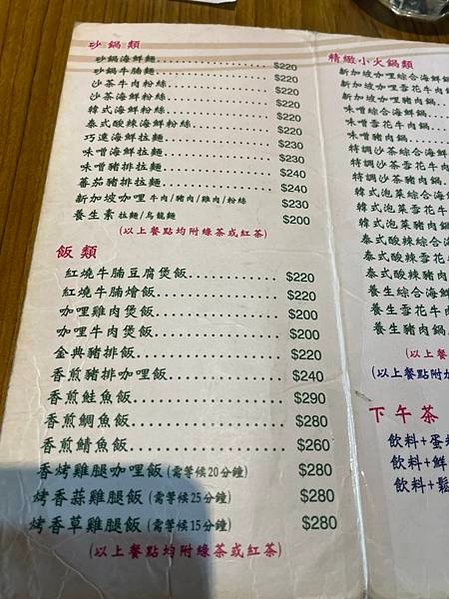 砂鍋類
砂鍋海鮮麵 $220
砂鍋牛腩麵 $220
沙茶牛肉粉絲 $220
沙茶海鮮粉絲 $220
韓式海鮮粉絲 $220
泰式酸辣海鮮粉絲 $220
巧達海鮮拉麵 $230
味噌海鮮拉麵 $230
味噌豬排拉麵 $240
蕃茄豬排拉麵 $240
新加坡咖哩 牛肉/豬肉/雞肉/粉絲 $230
養生素 拉麵/烏龍麵 $200
(以上餐點均附綠茶或紅茶)
飯類
紅燒牛腩豆腐煲飯 $220
紅燒牛腩燴飯 $220
咖哩雞肉煲飯 $200
咖哩牛肉煲飯 $200
金典豬排飯 $220
香煎豬排咖哩飯 $240
香煎鮭魚飯 $290
香煎鯛魚飯 $280
香煎鯖魚飯 $260
香烤雞腿咖哩飯 (需等候20分鐘) $280
烤香蒜雞腿飯 (需等候25分鐘) $280
烤香草雞腿飯 (需等候15分鐘) $280
(以上餐點均附綠茶或紅茶)
精緻小火鍋類
新加坡咖哩綜合海鮮鍋
新加坡咖哩雪花牛肉
新加坡咖哩豬肉鍋
味噌綜合海鮮鍋
味噌雪花牛肉鍋
味噌豬肉鍋
特調沙茶綜合海鮮
特調沙茶雪花牛
特調沙茶豬肉鍋
韓式泡菜綜合海
韓式泡菜雪花牛
韓式泡菜豬肉鍋
泰式酸辣綜合
泰式酸辣雪花
泰式酸辣豬肉
養生綜合海鮮
養生雪花牛
養生豬肉鍋
(以
(以上餐點附加
下午茶
飲料+蛋糕
飲料+鮮
飲料+鬆